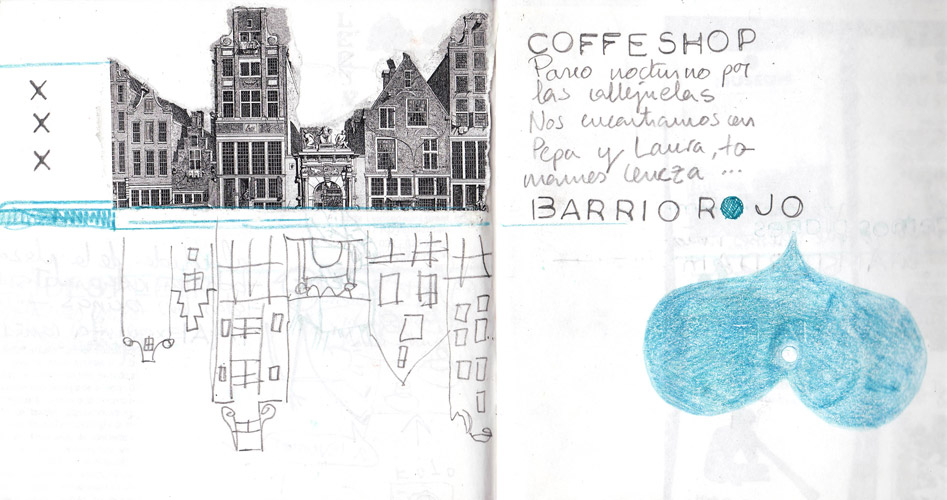 X
X
X
COFFESHOP
Paseo nocturno por
las callejuelas
Nos encontramos con
Pepa y Laura, to
mamos cerveza ...
BARRIO ROJO